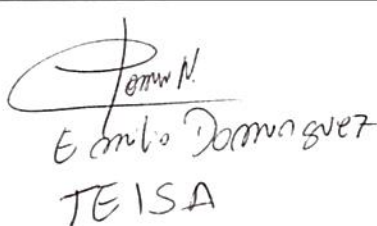 Emilio Dominguez
TEISA